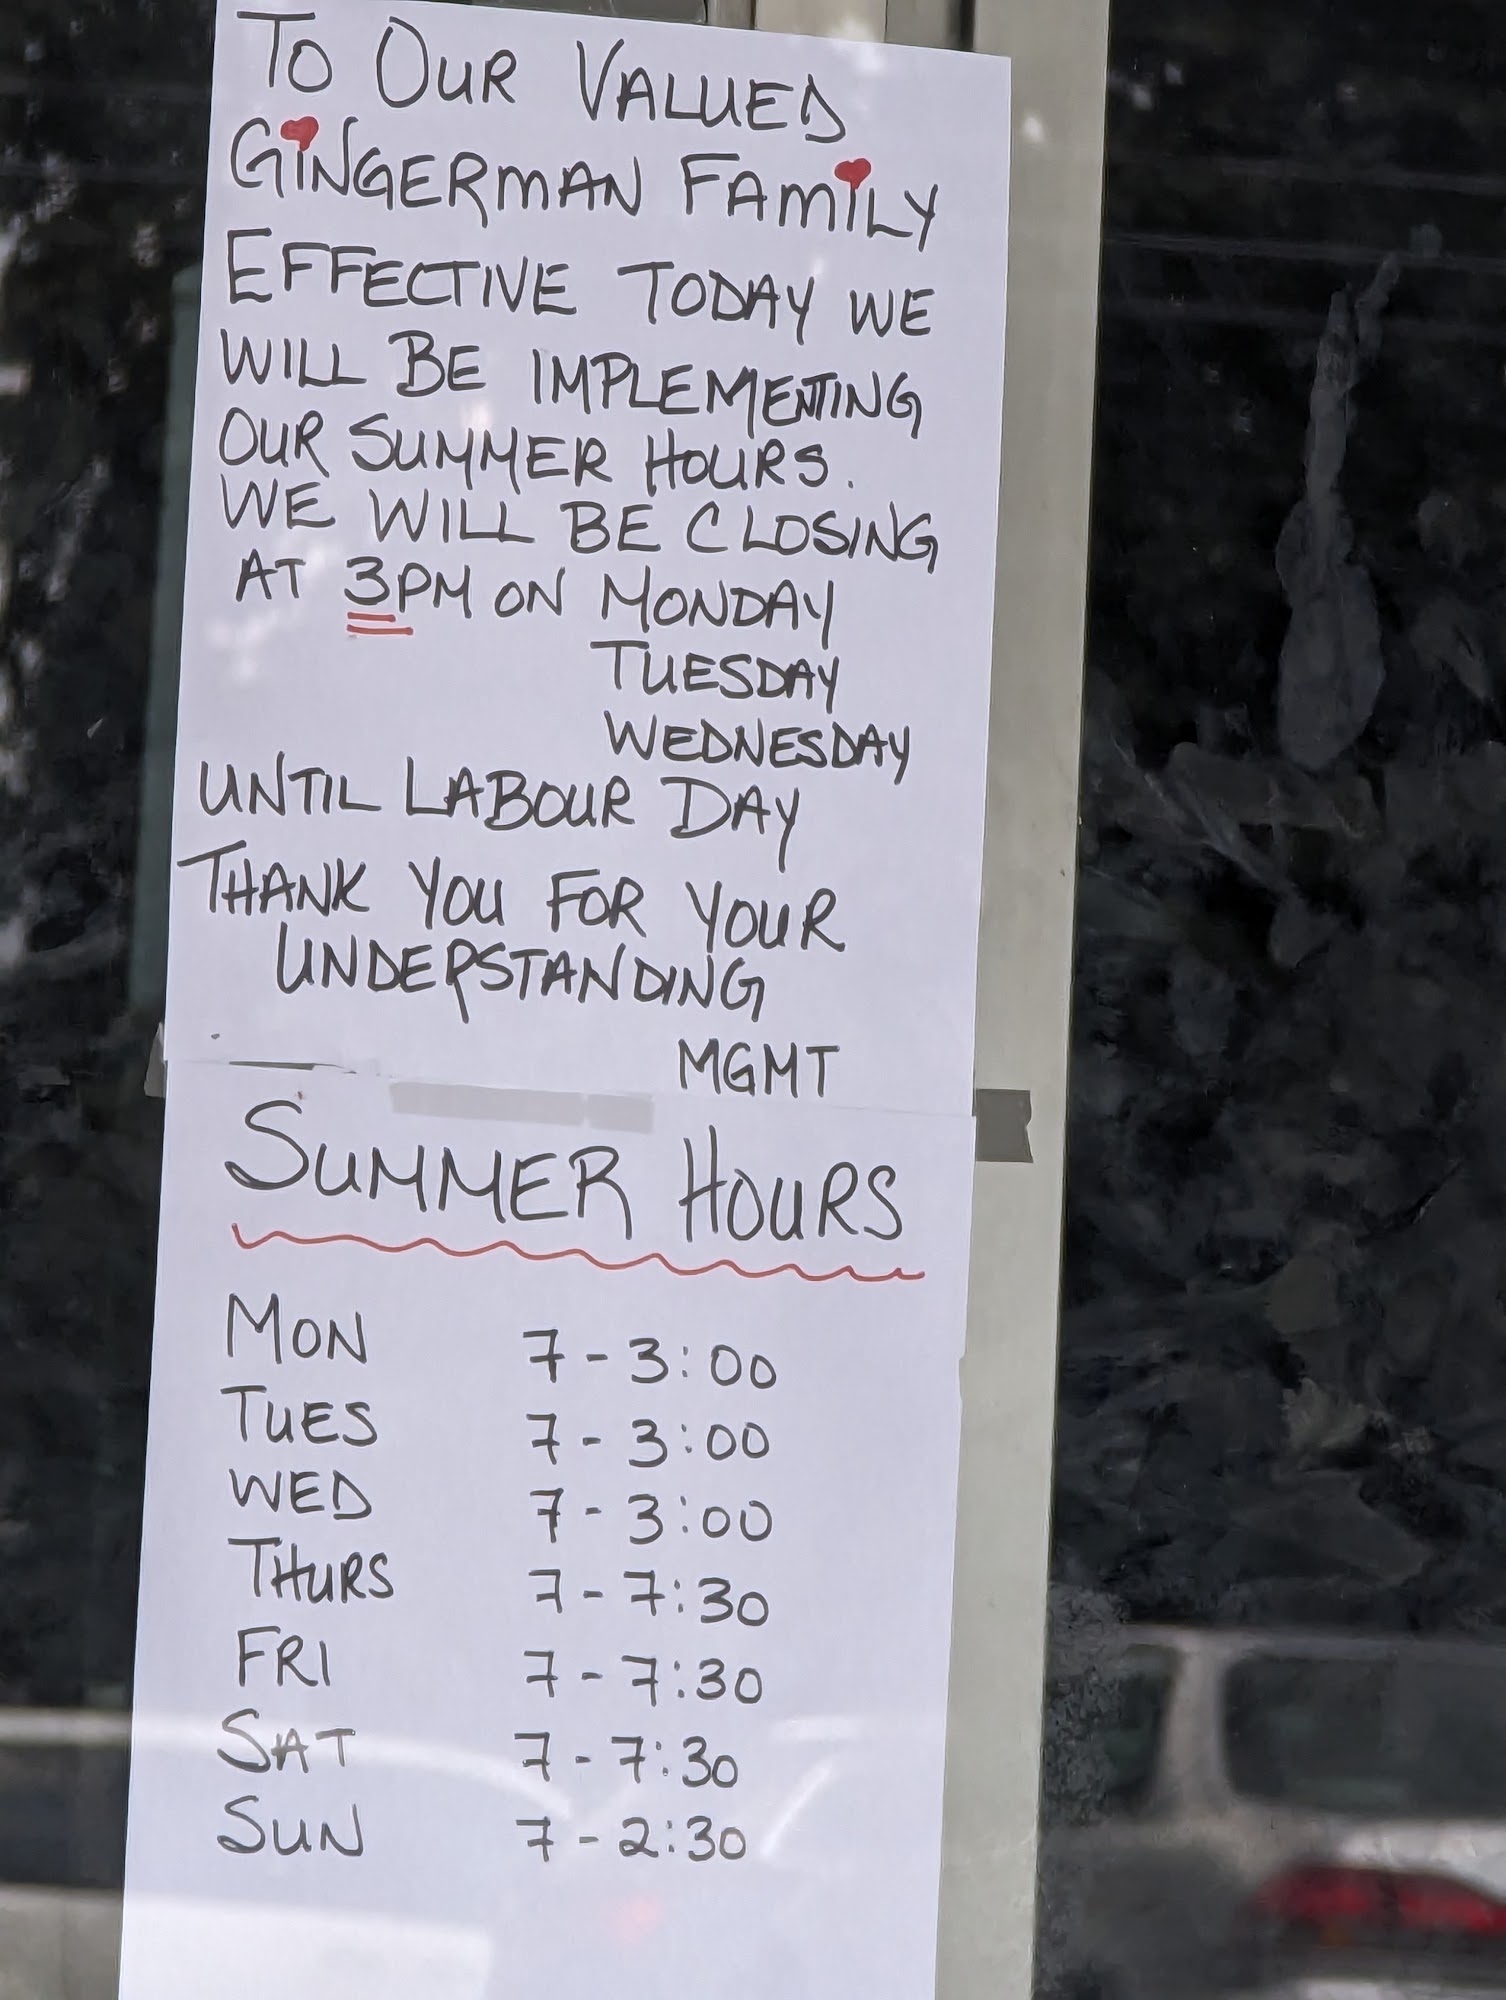 TO OUR VALUED
GINGERMAN FAMILY
EFFECTIVE TODAY WE
WILL BE IMPLEMENTING
OUR SUMMER HOURS.
WE WILL BE CLOSING
AT 3PM ON MONDAY
TUESDAY
WEDNESDAY
UNTIL LABOUR DAY
THANK YOU FOR YOUR
UNDERSTANDING
MGMT
SUMMER HOURS
MON 7-3:00
TUES 7-3:00
WED 7-3:00
THURS 7-7:30
FRI 7-7:30
SAT 7-7:30
SUN 7-2:30